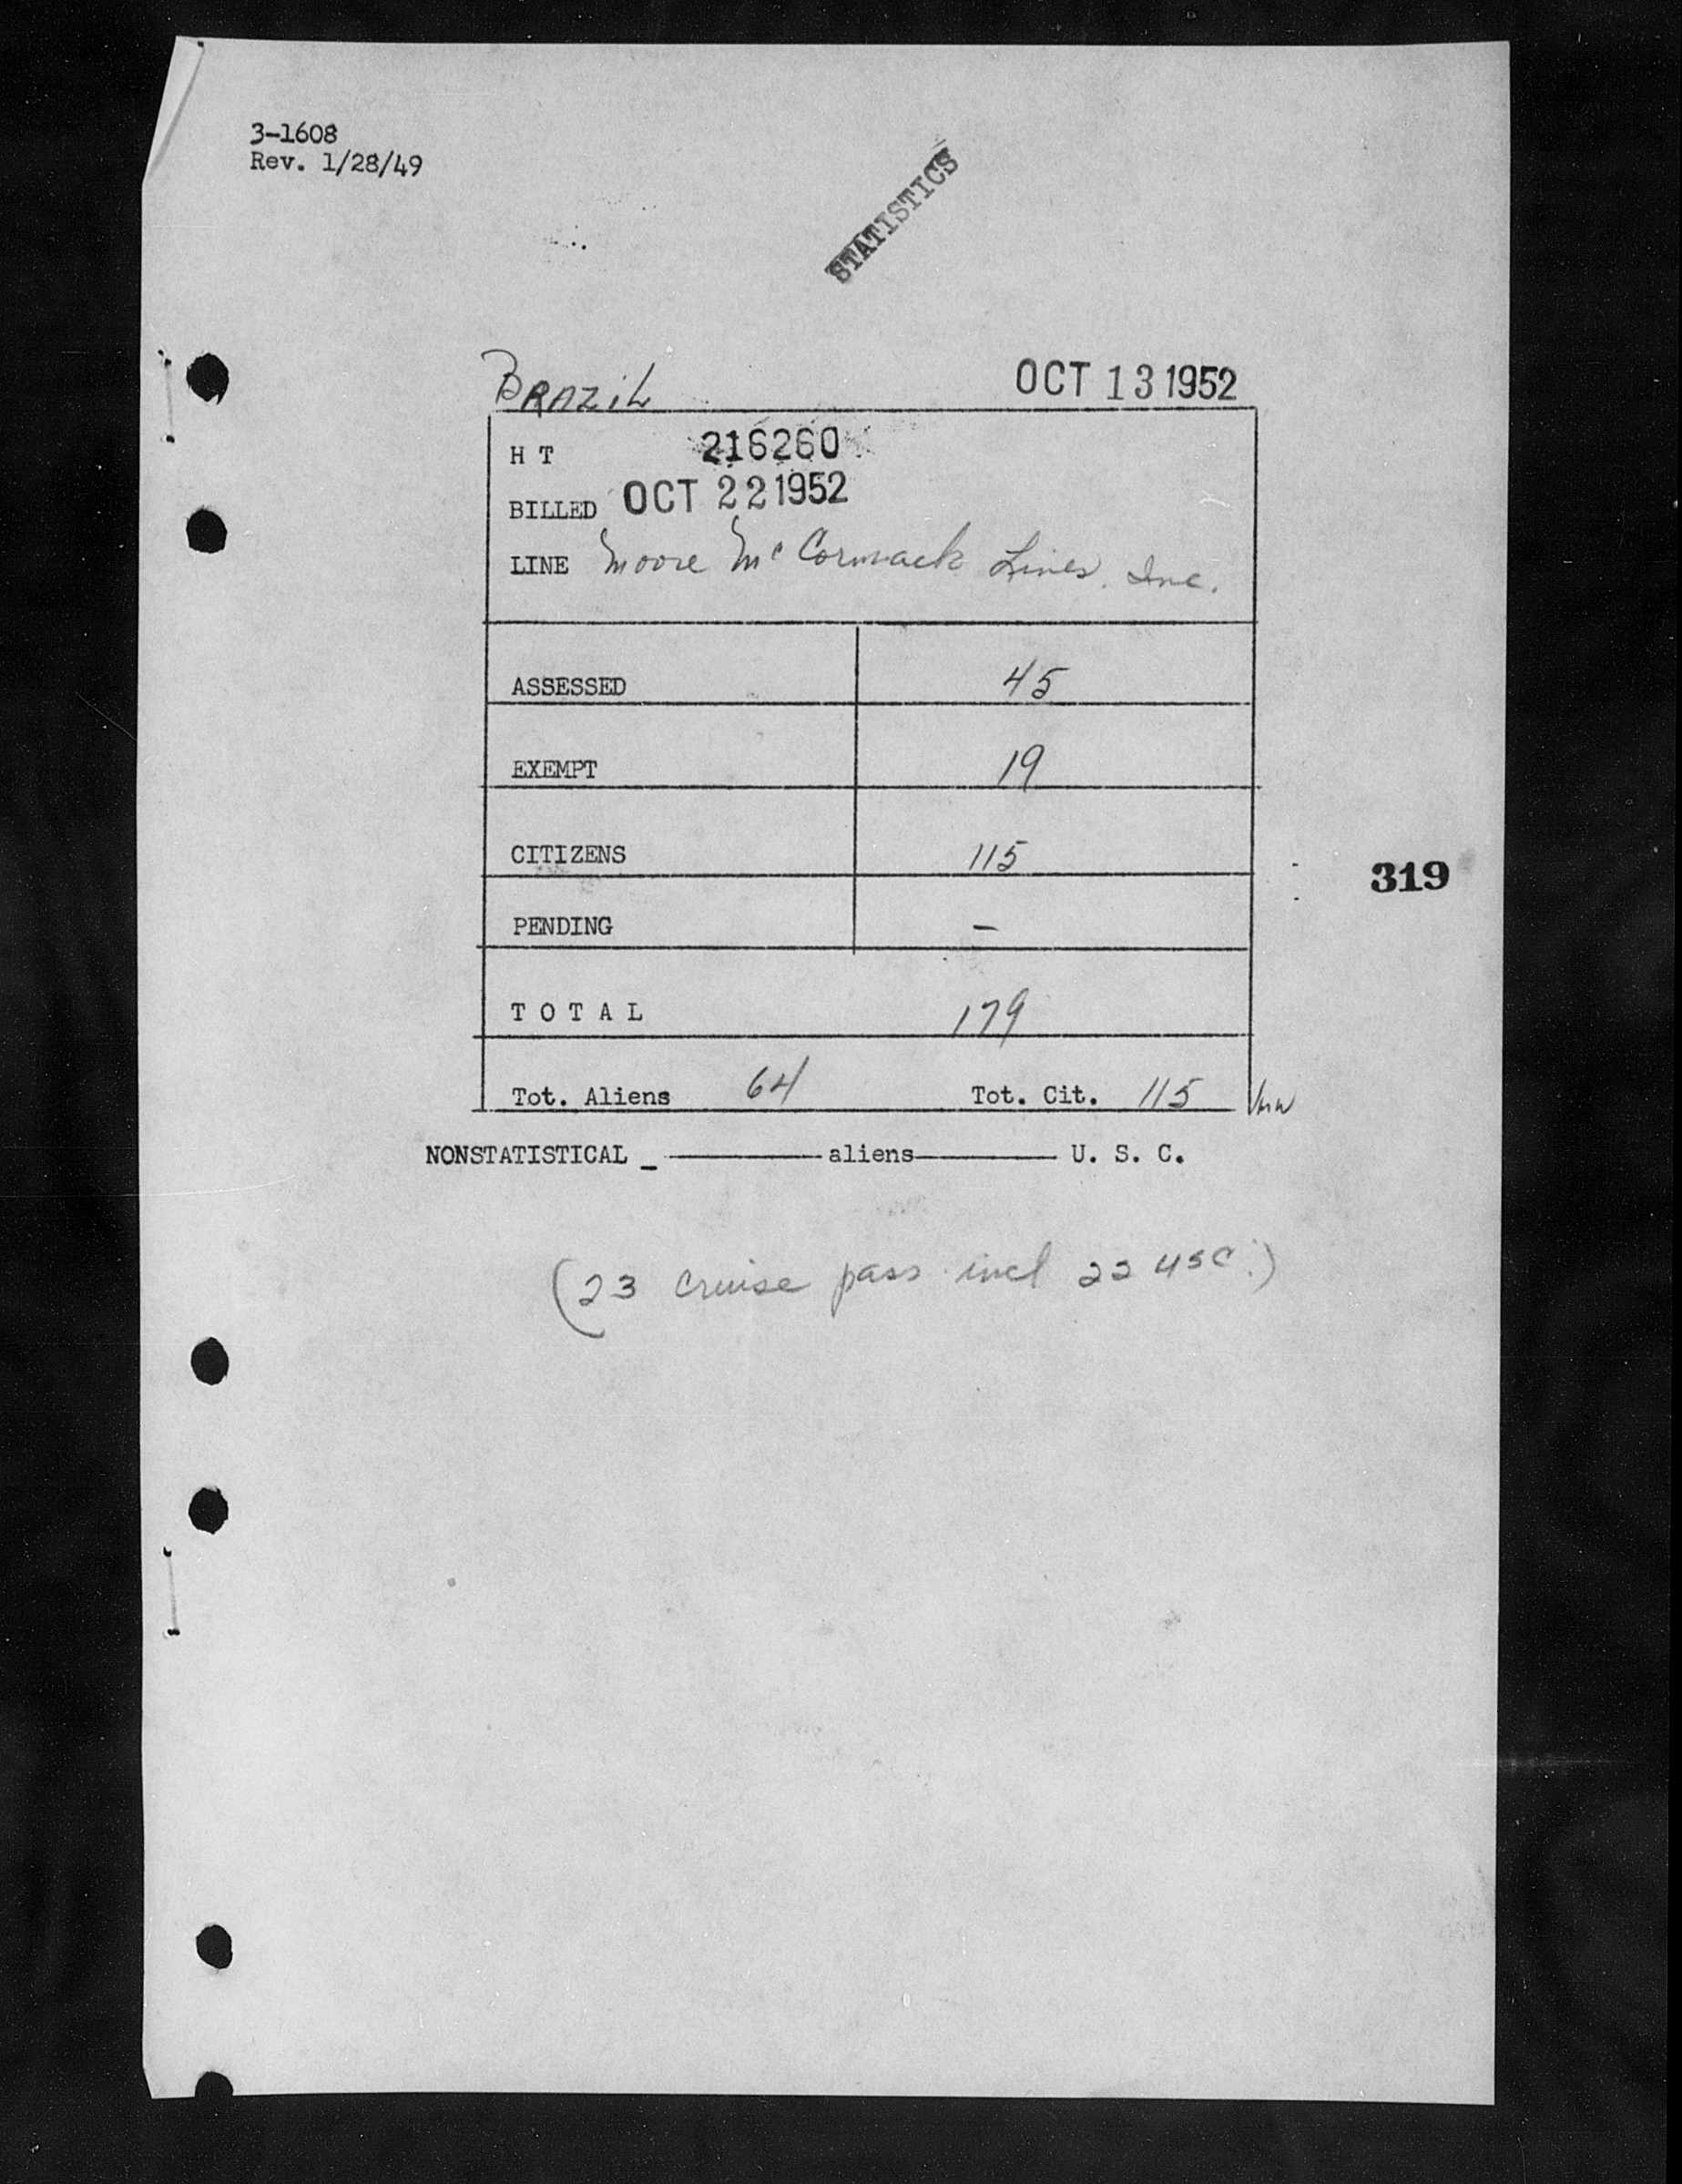 3-1608
Rev. 1/28/49
STATISTICS
BRAZIL OCT 13 1952
H T 216260
BILLED OCT 22 1952
LINE Moore Mc Cormack Lines, Inc.
ASSESSED 45
EXEMPT 19
CITIZENS 115
319
PENDING –
T O T A L 179
Tot. Aliens 64 Tot. Cit. 115
NONSTATISTICAL _ aliens U. S. C.
(23 cruise pass incl 22 USC.)